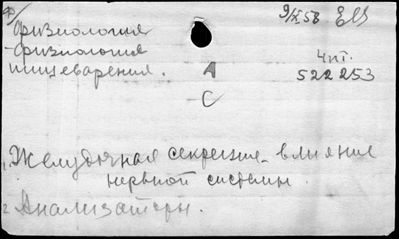 9/IX 58
Физиология
-физиология
пищеварения.
А
Чит.
522253
С
1. Желудочная секреция - влияние
нервной системы.
2. Анализаторы.